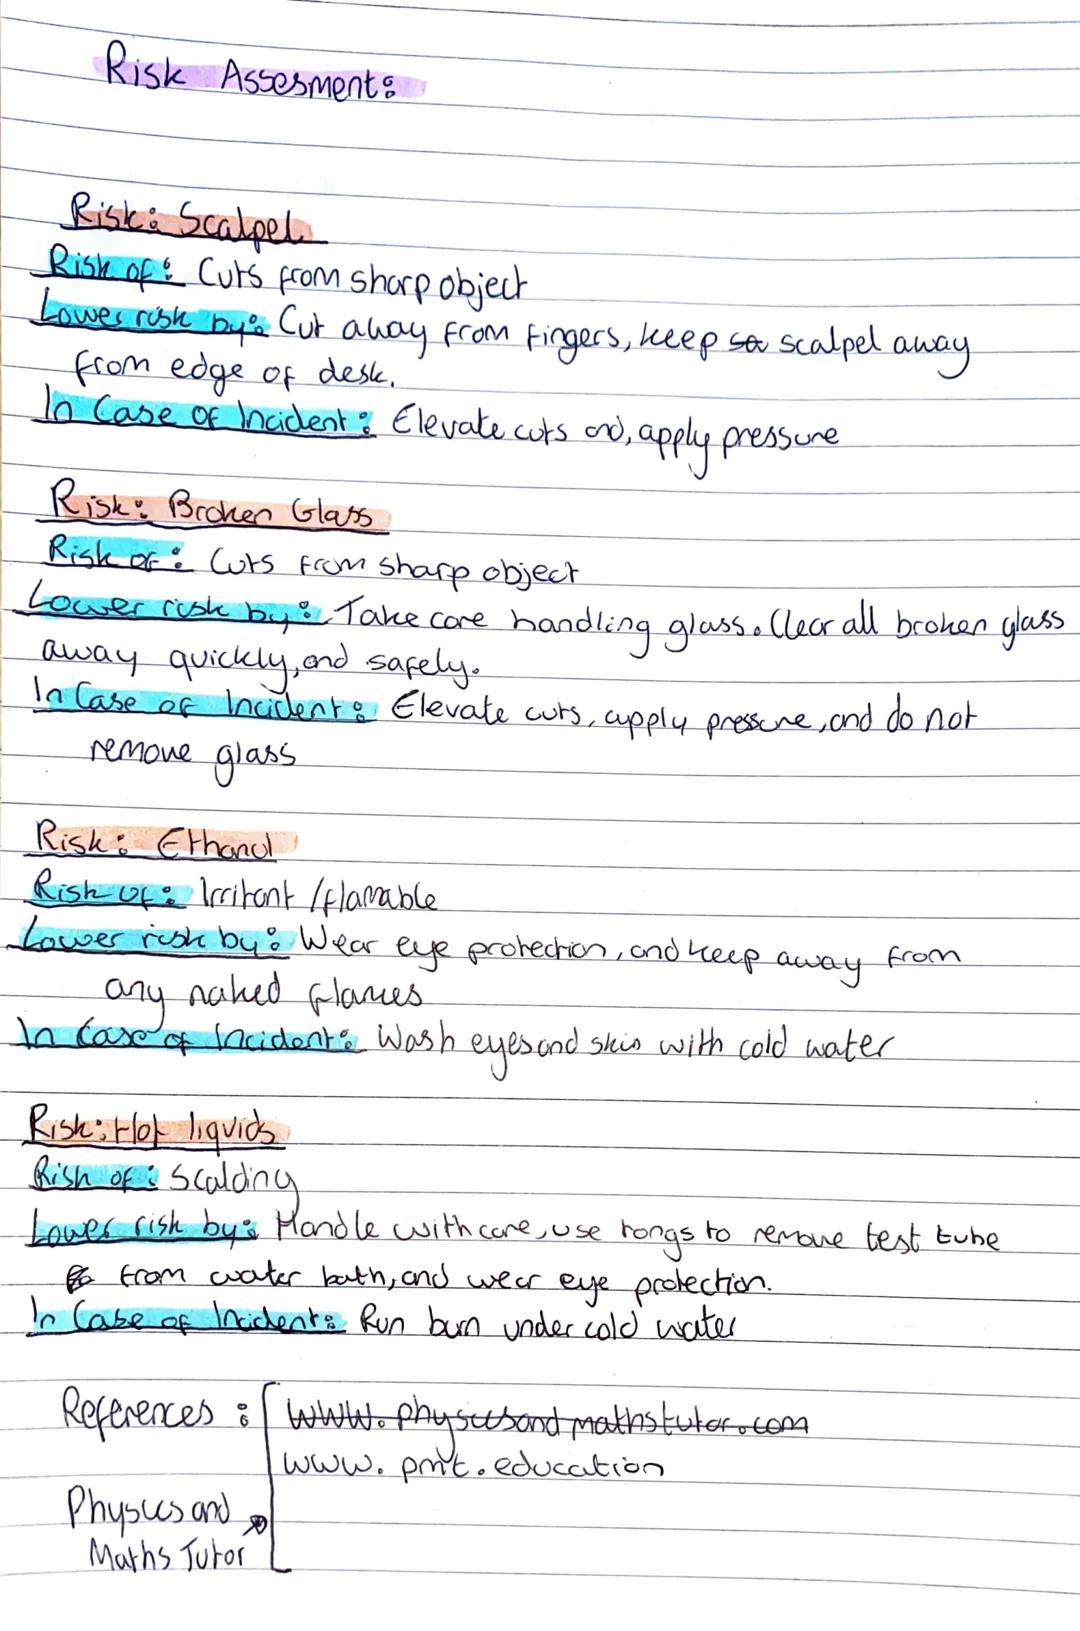 Risk Assesment:
Risk: Scalpel
Risk of: Cuts from sharp object
Lower risk by: Cut away from fingers, keep sa scalpel away
from edge of desk.
In Case of Incident: Elevate cuts and, apply pressure
Risk: Broken Glass
Risk of: Cuts from sharp object
Lower risk by: Take care handling glass. Clear all broken glass
away quickly, and safely.
In Case of Incident: Elevate cuts, apply pressure, and do not
remove glass
Risk: Ethanol
Risk of: Irritant /flamable
Lower risk by: Wear eye protection, and keep away from
any naked flames
In Case of Incident: Wash eyes and skin with cold water
Risk: Hot liquids
Risk of: Scalding
Lower risk by: Handle with care, use tongs to remove test tube
from water bath, and wear eye protection.
In Case of Incident: Run burn under cold water
References: www.physicsandmathstutor.com
www.pmt.education
Physics and
Maths Tutor